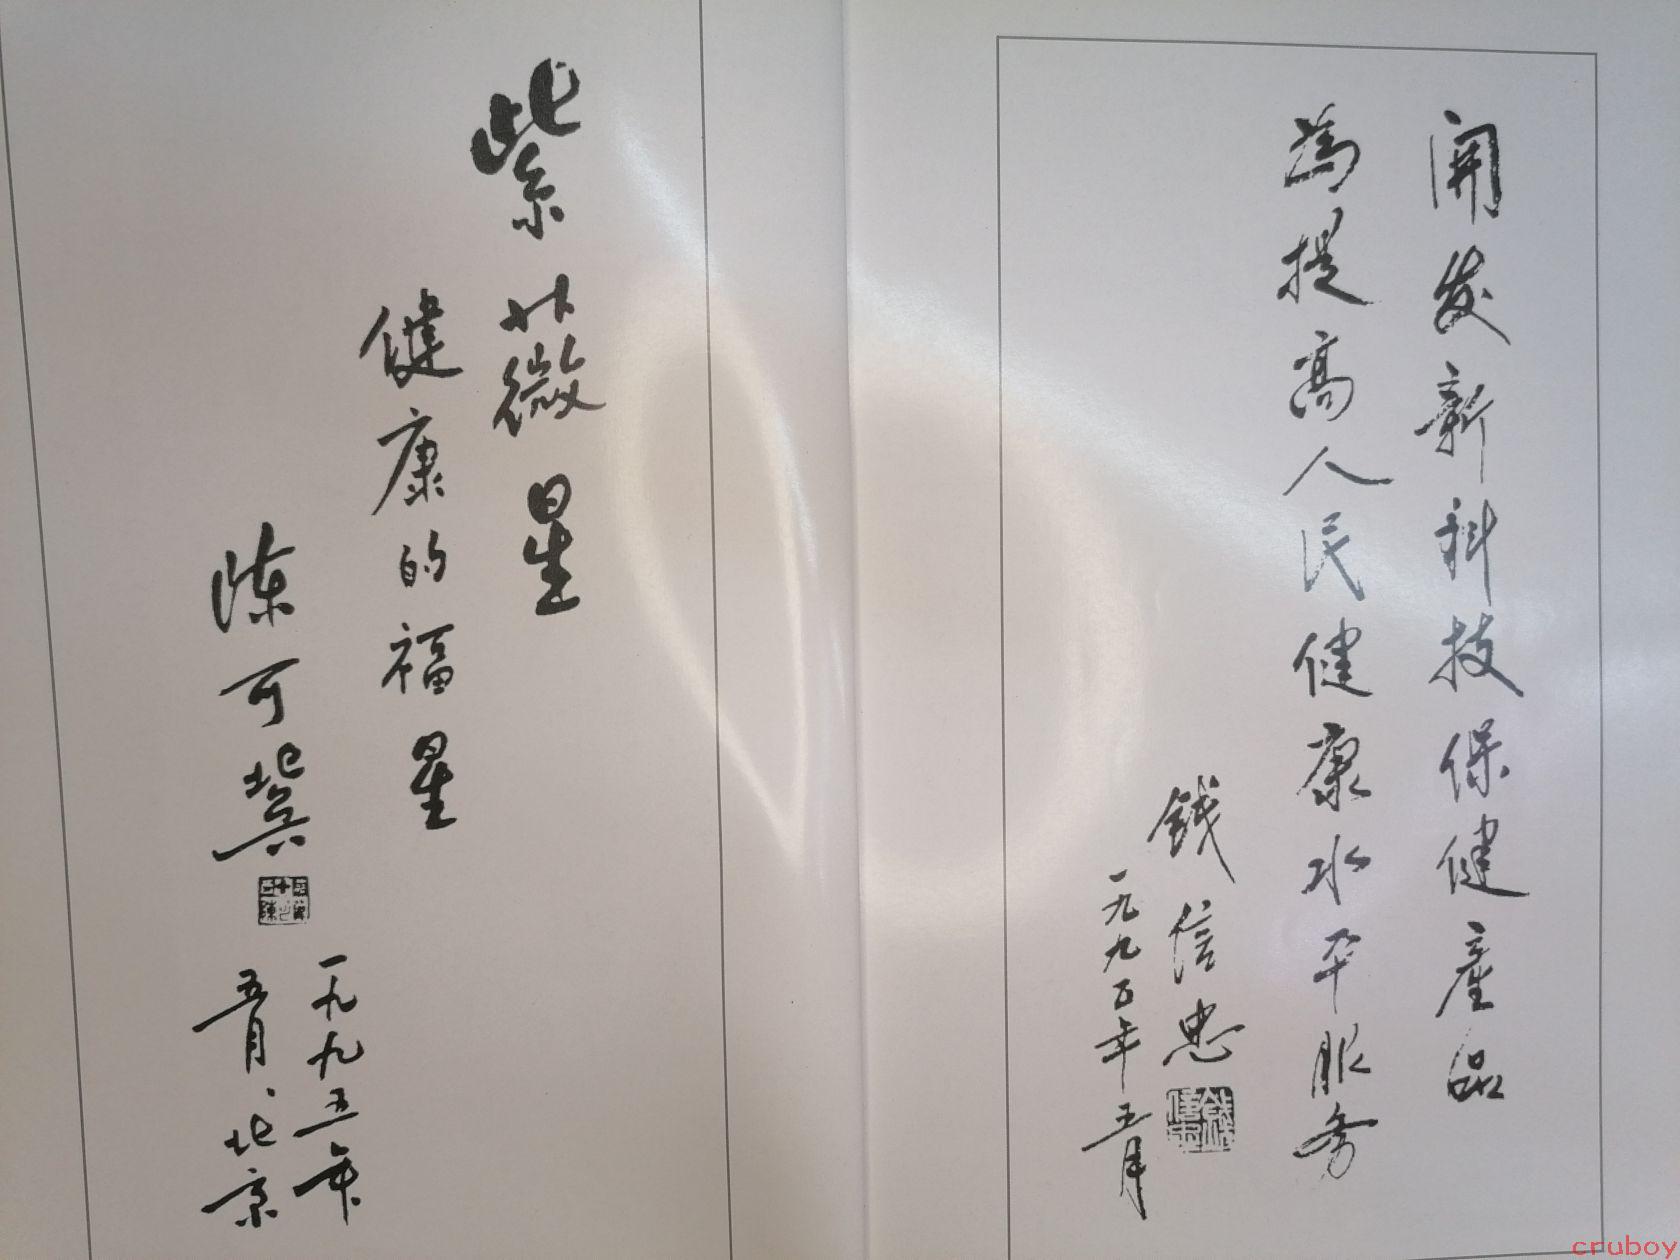 開发新科技保健産品
為提高人民健康水平服务
錢信忠
一九九五年五月
紫薇星
健康的福星
陳可冀
一九九五年
五月、北京
cruboy